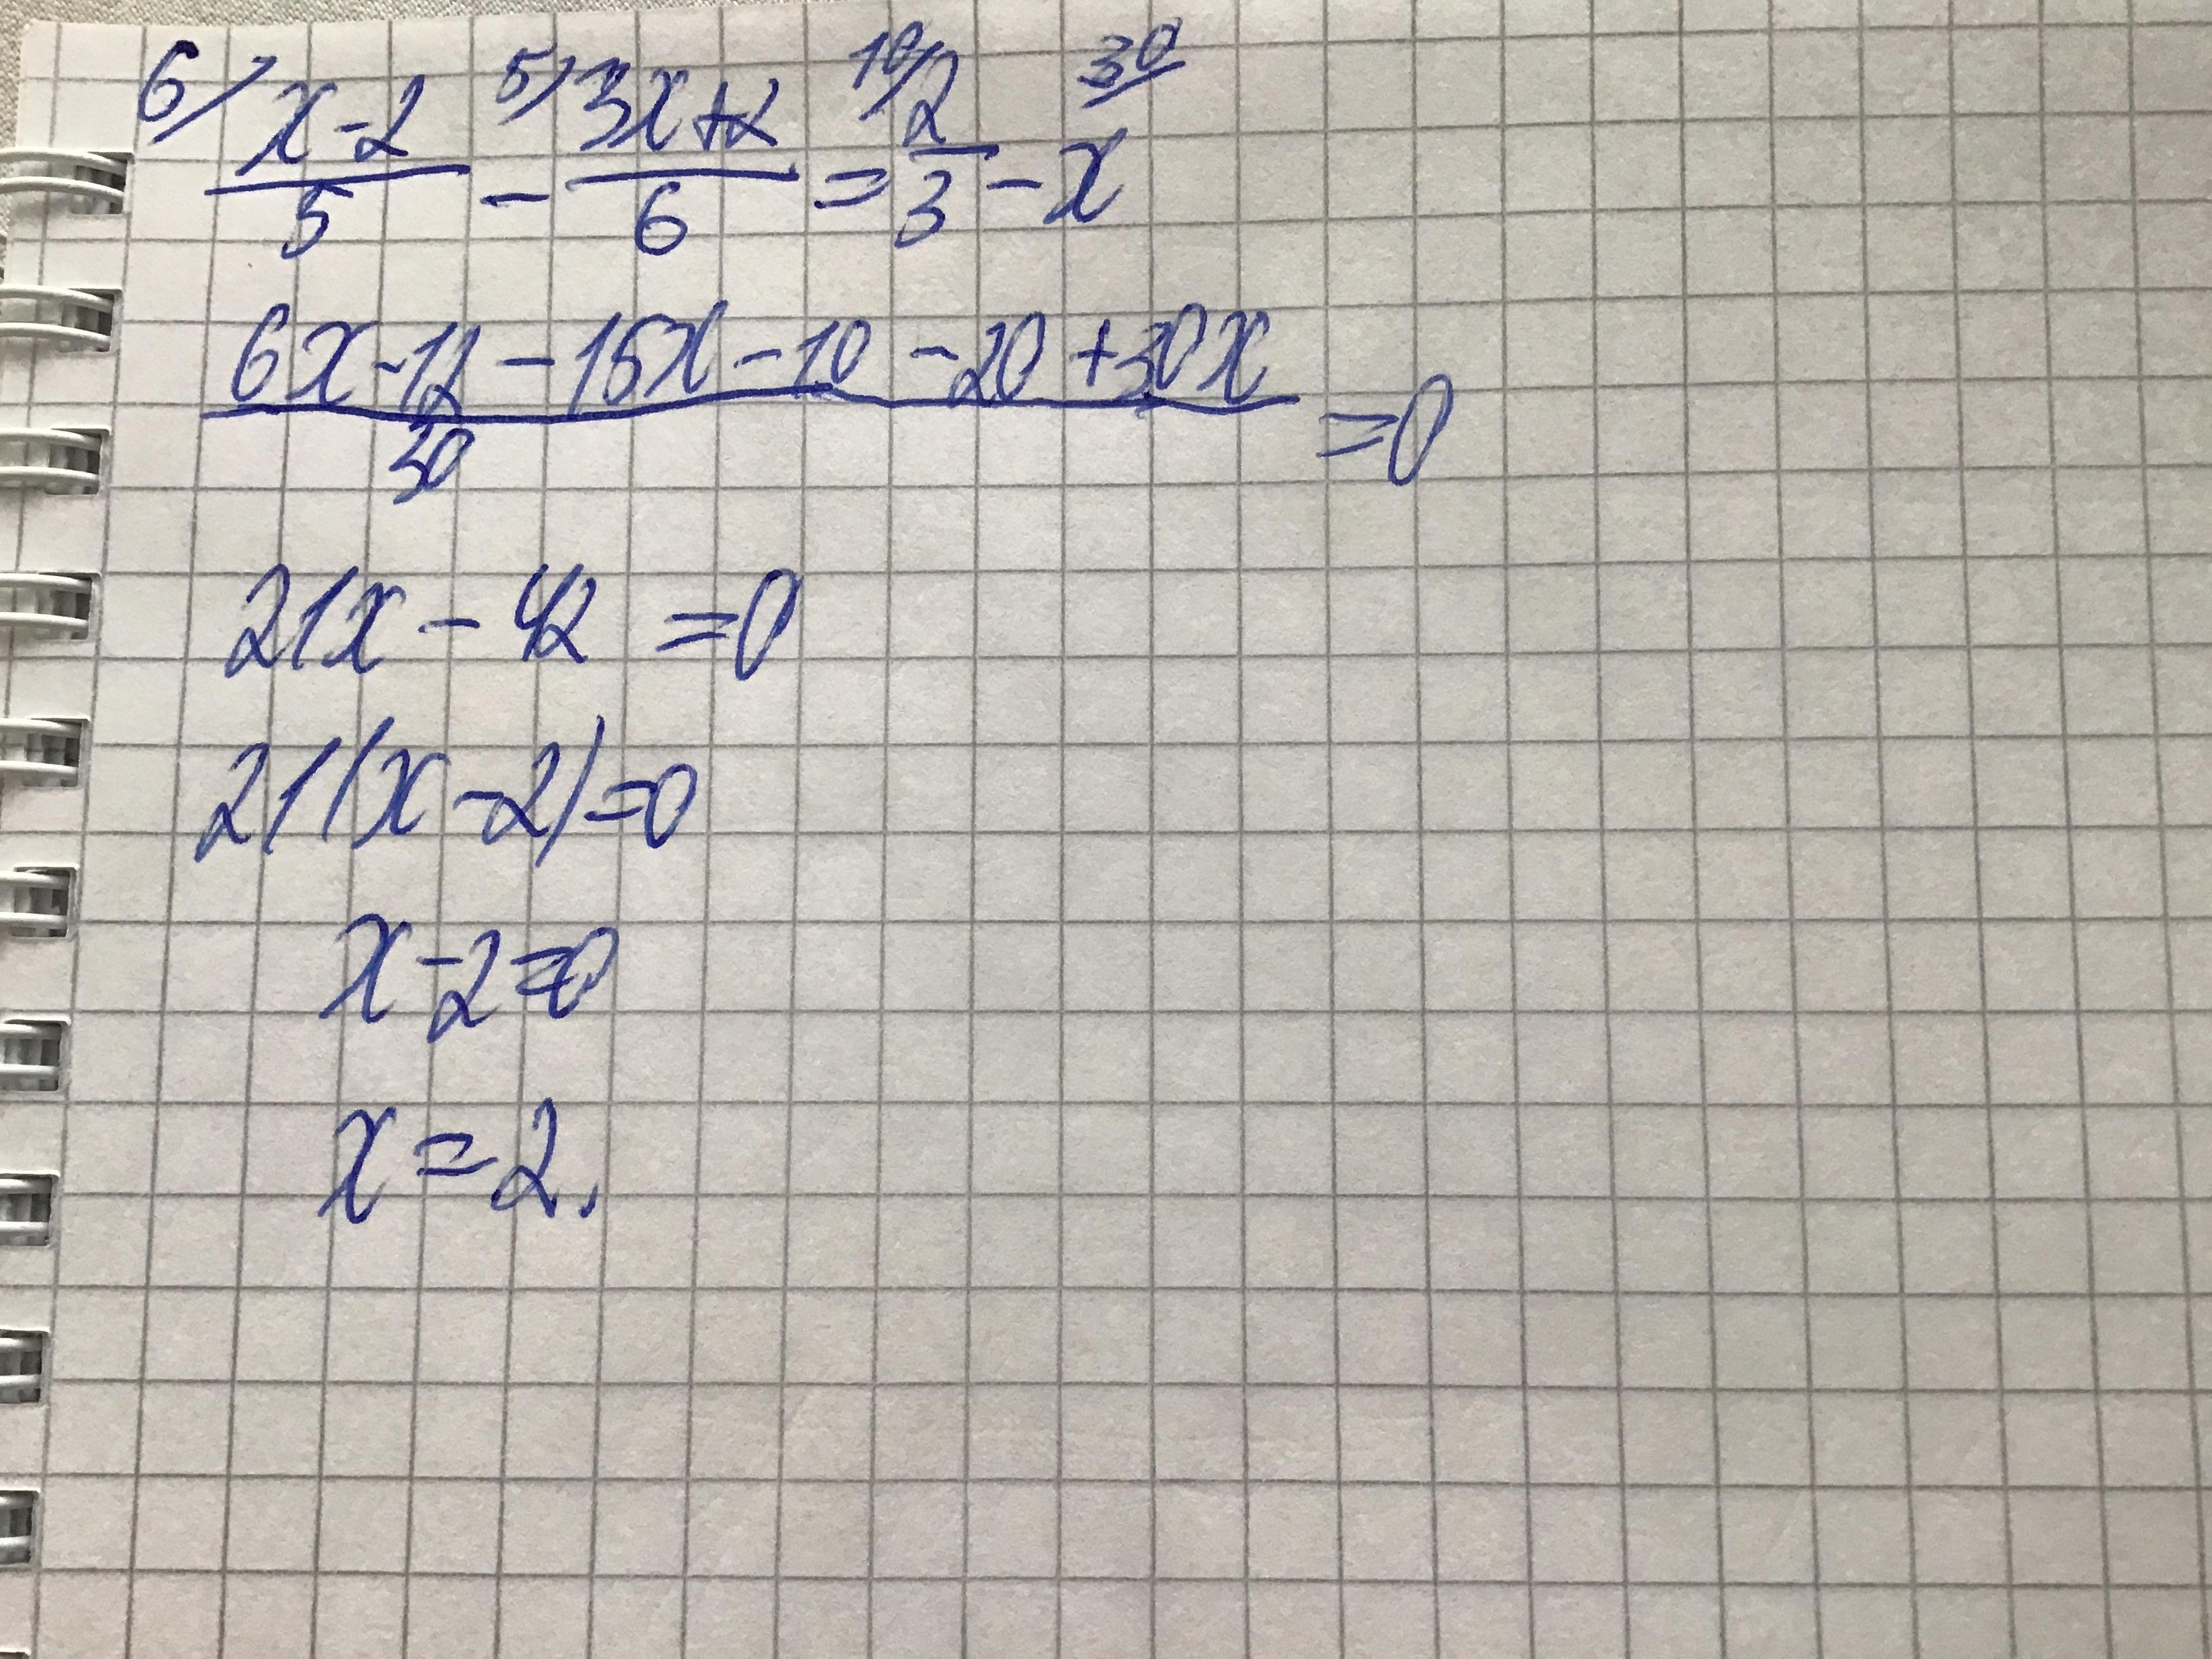 6/ x-2/5 - 5/ 3x+2/6 = 10/ 2/3 - 30/ x
6x-12-15x-10-20+30x/30 =0
21x-42=0
21(x-2)=0
x-2=0
x=2.